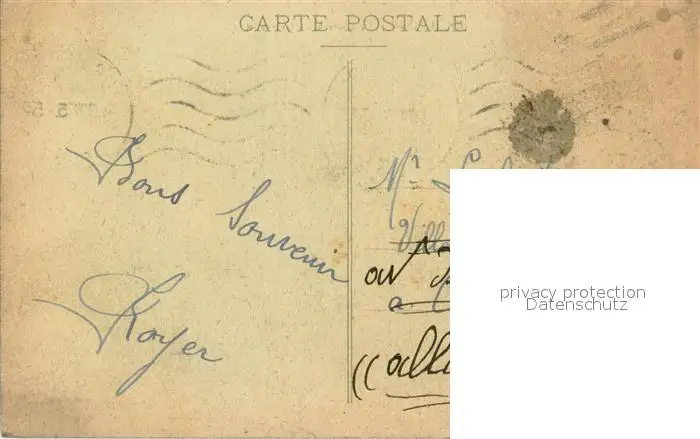 CARTE POSTALE
Bons Souvenir
Royer
Mr
Villa
ou
a
((alle
privacy protection
Datenschutz